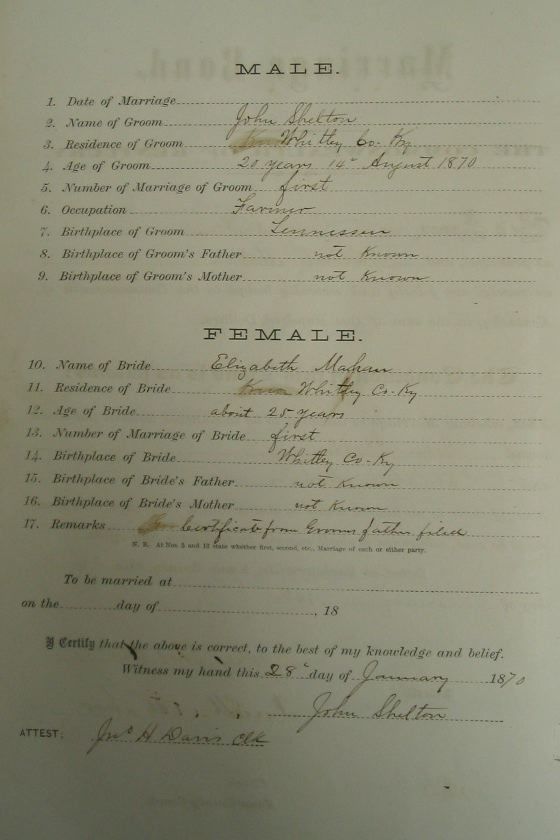 MALE.
1. Date of Marriage
2. Name of Groom John Shelton
3. Residence of Groom Whitley Co. Ky
4. Age of Groom 20 years 14" August 1870
5. Number of Marriage of Groom first
6. Occupation Farmer
7. Birthplace of Groom Tennessee
8. Birthplace of Groom's Father not Known
9. Birthplace of Groom's Mother not Known
FEMALE.
10. Name of Bride Elizabeth Mahan
11. Residence of Bride Whitley Co. Ky
12. Age of Bride about 25 years
13. Number of Marriage of Bride first
14. Birthplace of Bride Whitley Co. Ky
15. Birthplace of Bride's Father not Known
16. Birthplace of Bride's Mother not Known
17. Remarks Certificate from Grooms father filed
N. B. At Nos. 5 and 13 state whether first, second, etc., Marriage of each or either party.
To be married at
on the day of , 18
I Certify that the above is correct, to the best of my knowledge and belief.
Witness my hand this 28" day of January 1870
John Shelton
ATTEST: Jno H Davis Clk